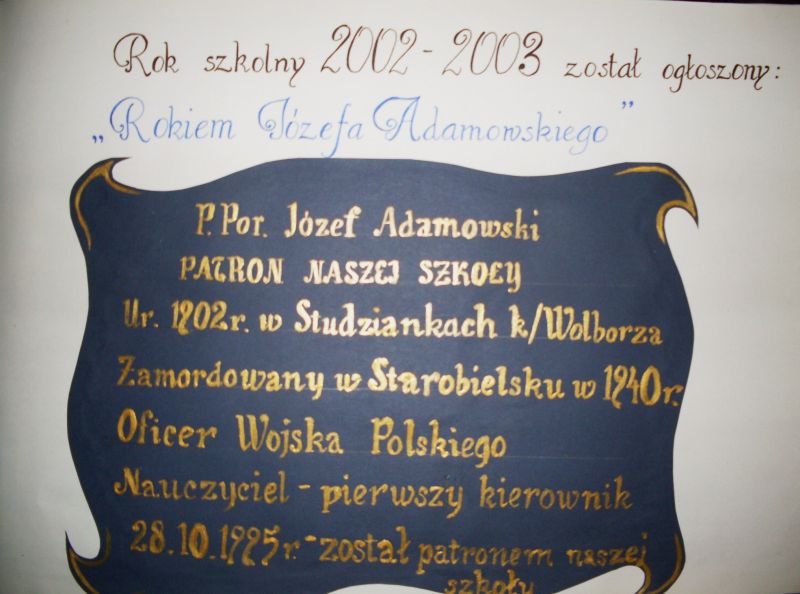 Rok szkolny 2002-2003 został ogłoszony:
„Rokiem Józefa Adamowskiego”
P.Por. Józef Adamowski
PATRON NASZEJ SZKOŁY
Ur. 1902r. w Studziankach k/Wolborza
Zamordowany w Starobielsku w 1940r.
Oficer Wojska Polskiego
Nauczyciel - pierwszy kierownik
28.10.1995r - został patronem naszej
szkoły